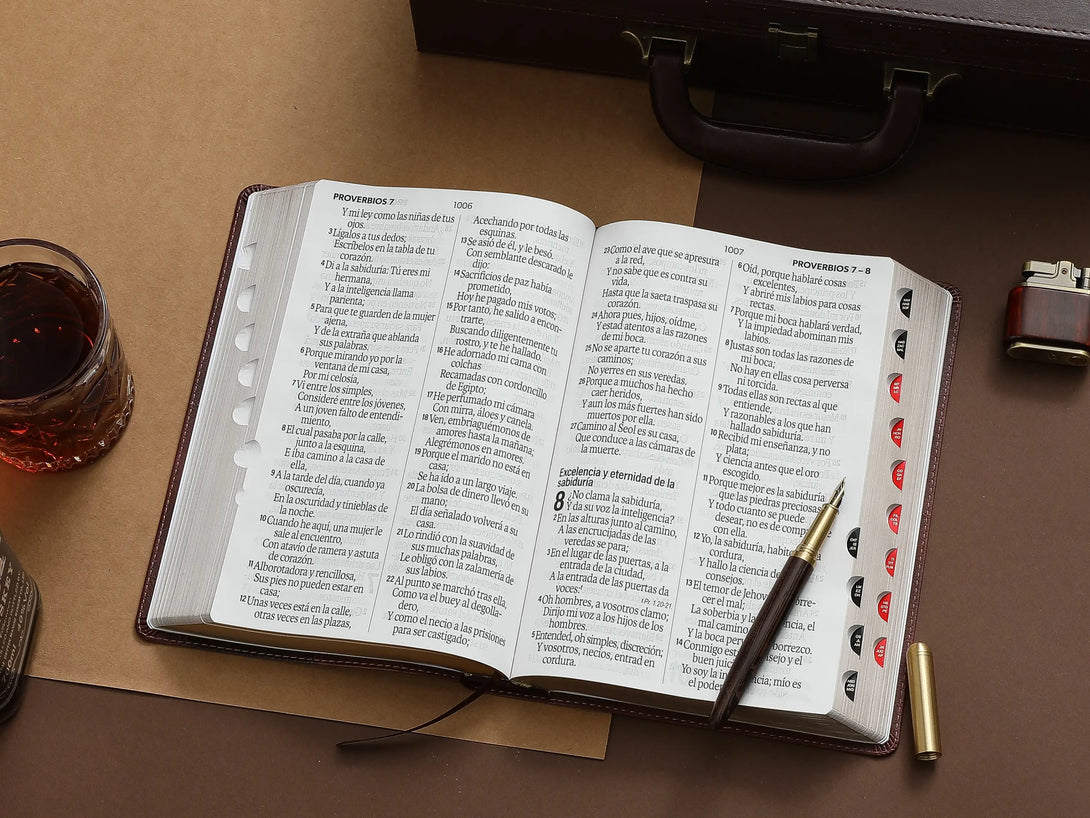 PROVERBIOS 7
1006
Y mi ley como las niñas de tus
ojos.
3 Lígalos a tus dedos;
Escríbelos en la tabla de tu
corazón.
4 Di a la sabiduría: Tú eres mi
hermana,
Y a la inteligencia llama
parienta;
5 Para que te guarden de la mujer
ajena,
Y de la extraña que ablanda
sus palabras.
6 Porque mirando yo por la
ventana de mi casa,
Por mi celosía,
7 Vi entre los simples,
Consideré entre los jóvenes,
A un joven falto de entendi-
miento,
8 El cual pasaba por la calle,
junto a la esquina,
E iba camino a la casa de
ella,
9 A la tarde del día, cuando ya
oscurecía,
En la oscuridad y tinieblas de
la noche.
10 Cuando he aquí, una mujer le
sale al encuentro,
Con atavío de ramera y astuta
de corazón.
11 Alborotadora y rencillosa,
Sus pies no pueden estar en
casa;
12 Unas veces está en la calle,
otras veces en las plazas,
Acechando por todas las
esquinas.
13 Se asió de él, y le besó.
Con semblante descarado le
dijo:
14 Sacrificios de paz había
prometido,
Hoy he pagado mis votos;
15 Por tanto, he salido a encon-
trarte,
Buscando diligentemente tu
rostro, y te he hallado.
16 He adornado mi cama con
colchas
Recamadas con cordoncillo
de Egipto;
17 He perfumado mi cámara
Con mirra, áloes y canela.
18 Ven, embriaguémonos de
amores hasta la mañana;
Alegrémonos en amores.
19 Porque el marido no está en
casa;
Se ha ido a un largo viaje.
20 La bolsa de dinero llevó en su
mano;
El día señalado volverá a su
casa.
21 Lo rindió con la suavidad de
sus muchas palabras,
Le obligó con la zalamería de
sus labios.
22 Al punto se marchó tras ella,
Como va el buey al degolla-
dero,
Y como el necio a las prisiones
para ser castigado;
1007
PROVERBIOS 7 – 8
23 Como el ave que se apresura
a la red,
Y no sabe que es contra su
vida,
Hasta que la saeta traspasa su
corazón.
24 Ahora pues, hijos, oídme,
Y estad atentos a las razones
de mi boca.
25 No se aparte tu corazón a sus
caminos;
No yerres en sus veredas.
26 Porque a muchos ha hecho
caer heridos,
Y aun los más fuertes han sido
muertos por ella.
27 Camino al Seol es su casa,
Que conduce a las cámaras de
la muerte.
Excelencia y eternidad de la
sabiduría
8 ¿No clama la sabiduría,
Y da su voz la inteligencia?
2 En las alturas junto al camino,
A las encrucijadas de las
veredas se para;
3 En el lugar de las puertas, a la
entrada de la ciudad,
A la entrada de las puertas da
voces:
1 Pr. 1.20-21
4 Oh hombres, a vosotros clamo;
Dirijo mi voz a los hijos de los
hombres.
5 Entended, oh simples, discreción;
Y vosotros, necios, entrad en
cordura.
6 Oíd, porque hablaré cosas
excelentes,
Y abriré mis labios para cosas
rectas.
7 Porque mi boca hablará verdad,
Y la impiedad abominan mis
labios.
8 Justas son todas las razones de
mi boca;
No hay en ellas cosa perversa
ni torcida.
9 Todas ellas son rectas al que
entiende,
Y razonables a los que han
hallado sabiduría.
10 Recibid mi enseñanza, y no
plata;
Y ciencia antes que el oro
escogido.
11 Porque mejor es la sabiduría
que las piedras preciosas
Y todo cuanto se puede
desear, no es de
con ella.
12 Yo, la sabiduría,
cordura,
Y hallo la ciencia
consejos.
13 El temor de
cer el mal;
La soberbia y la el
mal camino
Y la boca
14 Conmigo está y el
buen juicio
Yo soy la mío es
el poder